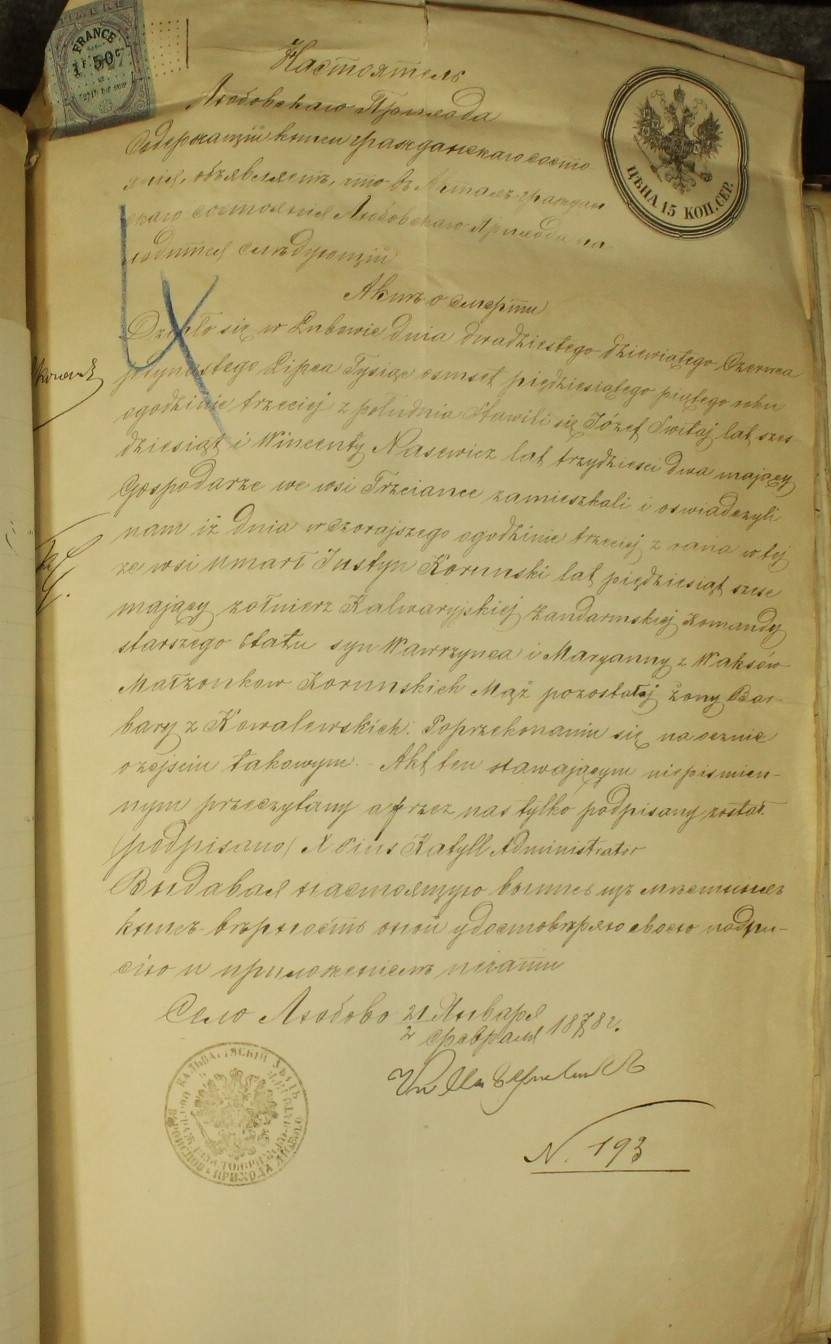 FRANCE
1F 50
Настоятель
Любовскаго Прихода
Содержащій книги гражданскаго состо-
янія, объявляетъ, что въ Актахъ граждан
скаго состоянія Любовскаго Прихода на
ходится слѣдующій
ЦѢНА 15 КОП. СЕР.
Актъ о смерти
Działo się w Lubowie dnia dwudziestego dziewiątego Czerwca
jedynastego Lipca Tysiąc osmset pięćdziesiątego piątego roku
o godzinie trzeciej z południa Stawili się Józef Switaj lat szes
dziesiąt i Wincenty Nasewicz lat trzydziesci dwa mający
Gospodarze we wsi Trzciance zamieszkali i oswiadczyli
nam iż dnia wczorajszego o godzinie trzeciej z rana w tej
ze wsi umarł Justyn Korunski lat pięćdziesiąt szesc
mający żołnierz Kalwaryjskiej Żandarmskiej Komandy
starszego Etatu syn Wawrzynca i Maryanny z Waksów
Małżonkow Korunskich Mąż pozostałej żony Bar-
bary z Kowalewskich. Po przekonaniu się naocznie
o zejsciu takowym. - Akt ten stawającym niepismien-
nym przeczytany a przez nas tylko podpisany został.
(podpisano) X Pius Katyll Administrator
Выдавая настоящую выпись изъ мѣстныхъ
книгъ вѣрность оной удостовѣряю своею подпи-
сью и приложеніемъ печати
Село Любово 21 Января
2 Февраля 1878 г.
N. 193